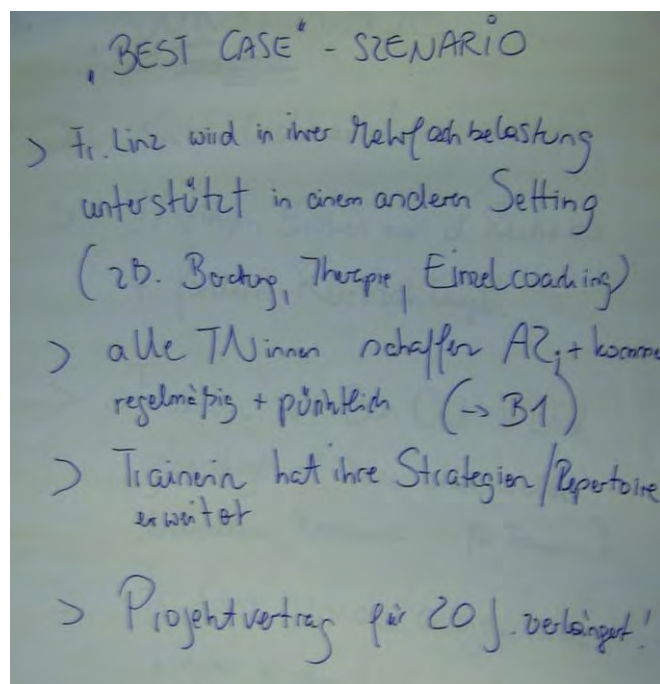 „BEST CASE“ - SZENARIO
> Fr. Linz wird in ihrer Mehrfachbelastung
unterstützt in einem anderen Setting
(zB. Beratung, Therapie, Einzelcoaching)
> alle TNinnen schaffen A2, + komme
regelmäßig + pünktlich (-> B1)
> Trainerin hat ihre Strategien/Repertoire
erweitert
> Projektvertrag für 20 J. verlängert!